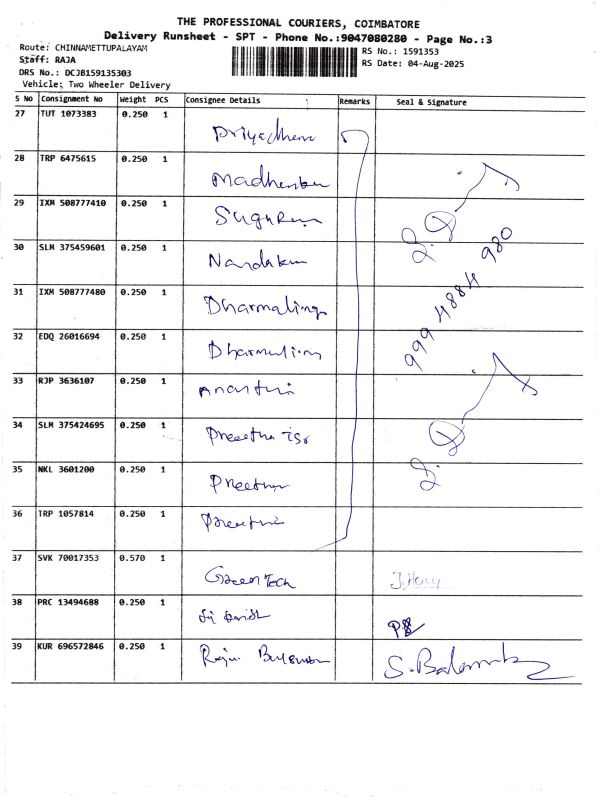 THE PROFESSIONAL COURIERS, COIMBATORE
Delivery Runsheet - SPT - Phone No.:9047080280 - Page No.:3
Route: CHINNAMETTUPALAYAM
RS No.: 1591353
Staff: RAJA
RS Date: 04-Aug-2025
DRS No.: DCJB159135303
Vehicle: Two Wheeler Delivery
S No Consignment No Weight PCS Consignee Details Remarks Seal & Signature
27 TUT 1073383 0.250 1
28 TRP 6475615 0.250 1
29 IXM 508777410 0.250 1 Sugu
30 SLM 375459601 0.250 1
31 IXM 508777480 0.250 1 Dharmalinga
999 4884 980
32 EDQ 26016694 0.250 1
33 RJP 3636107 0.250 1
34 SLM 375424695 0.250 1 Preetha
35 NKL 3601200 0.250 1
36 TRP 1057814 0.250 1
37 SVK 70017353 0.570 1 Green Tech
38 PRC 13494688 0.250 1
39 KUR 696572846 0.250 1